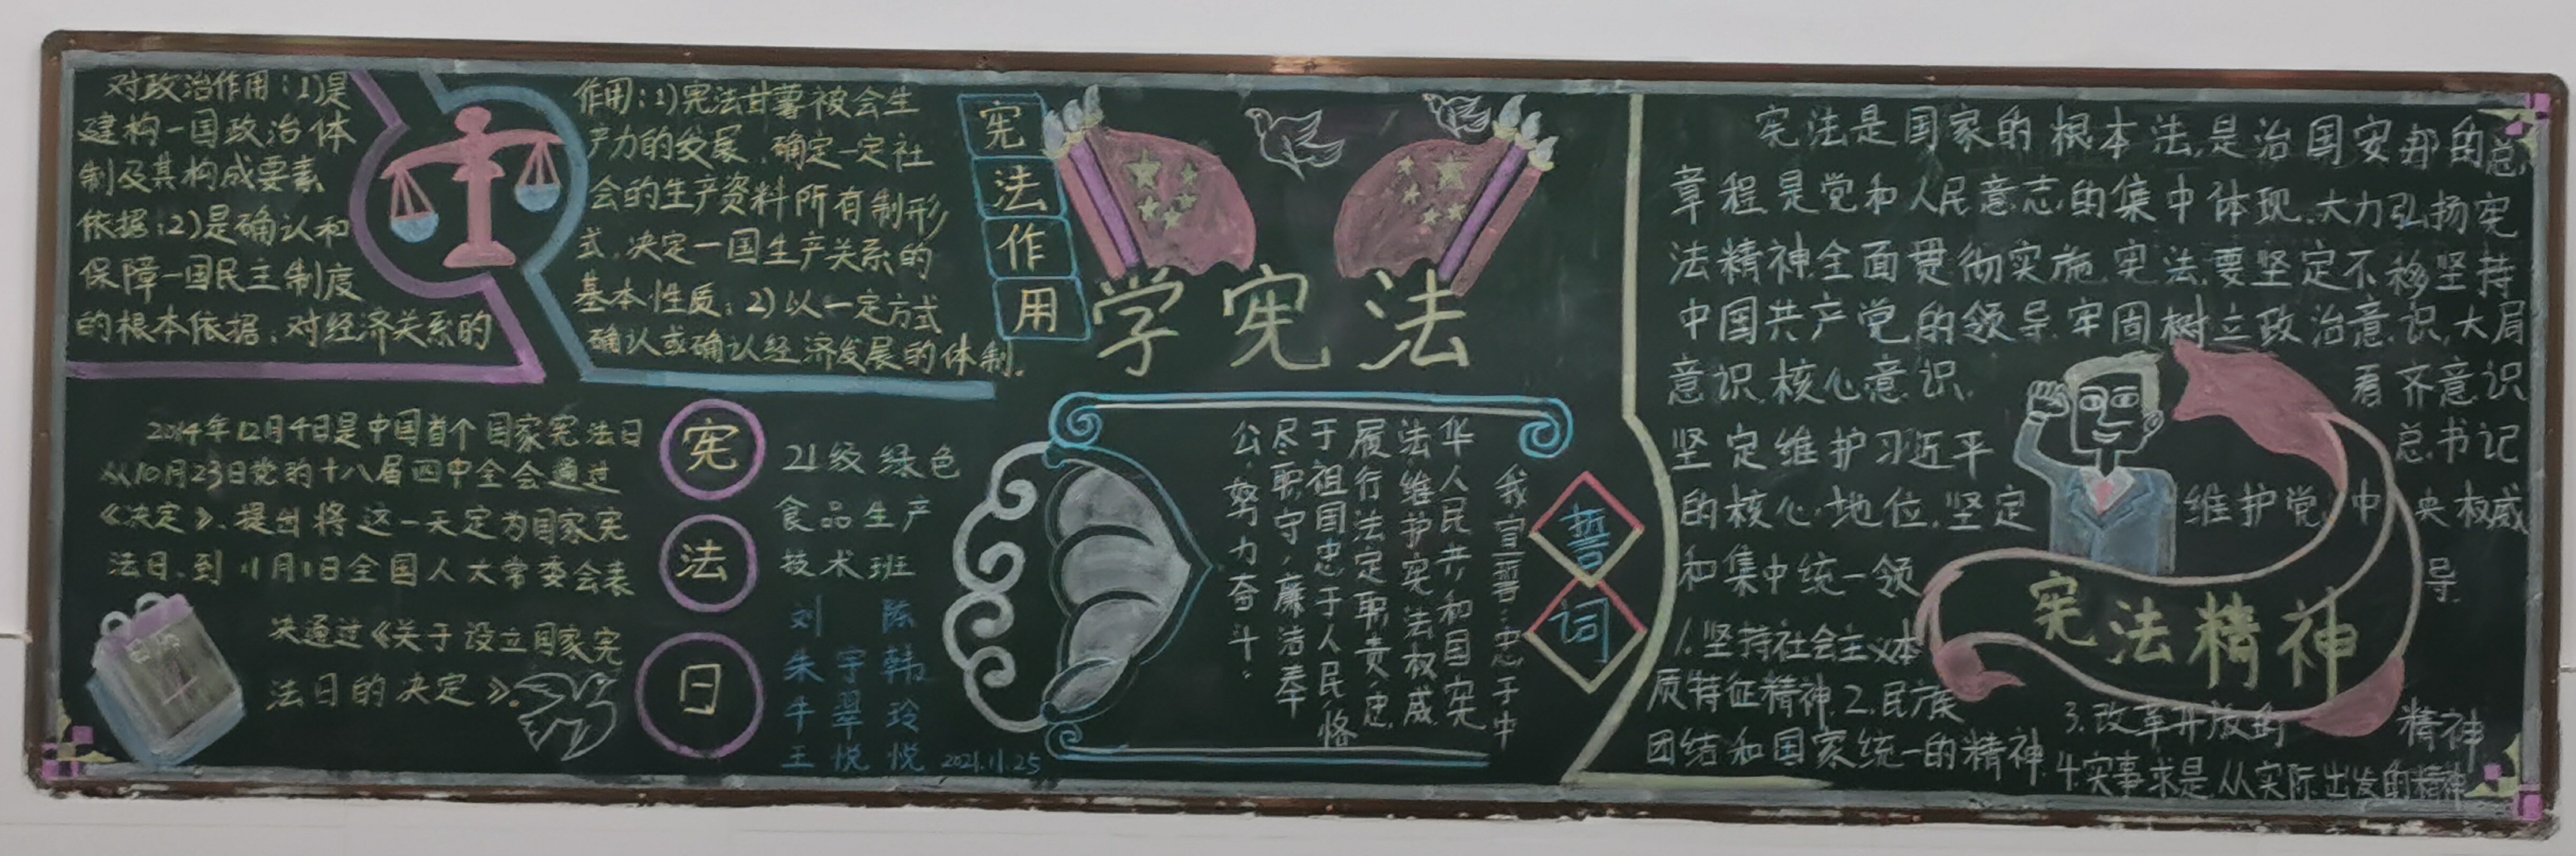 对政治作用：1)是
建构一国政治体
制及其构成要素
依据：2)是确认和
保障一国民主制度
的根本依据；对经济关系的
作用：1)宪法甘薯被会生
产力的发展，确定一定社
会的生产资料所有制形
式，决定一国生产关系的
基本性质；2)以一定方式
确认或确认经济发展的体制．
宪法作用
学宪法
2014年12月4日是中国首个国家宪法日
从10月23日党的十八届四中全会通过
《决定》，提出将这一天定为国家宪
法日，到11月1日全国人大常委会表
决通过《关于设立国家宪
法日的决定》．
宪法日
21级绿色
食品生产
技术班
刘 陈
朱宇韩
牛翠玲
王悦悦
2021.11.25
誓词
我宣誓：忠于中
华人民共和国宪
法，维护宪法权威
履行法定职责，忠
于祖国忠于人民，恪
尽职守，廉洁奉
公，努力奋斗．
宪法是国家的根本法，是治国安邦的总
章程是党和人民意志的集中体现．大力弘扬宪
法精神，全面贯彻实施宪法，要坚定不移坚持
中国共产党的领导，牢固树立政治意识，大局
意识，核心意识，看齐意识
坚定维护习近平总书记
的核心地位，坚定维护党中央权威
和集中统一领导．
宪法精神
1．坚持社会主义本
质特征精神．2．民族
团结和国家统一的精神
3．改革开放的精神
4．实事求是，从实际出发的精神